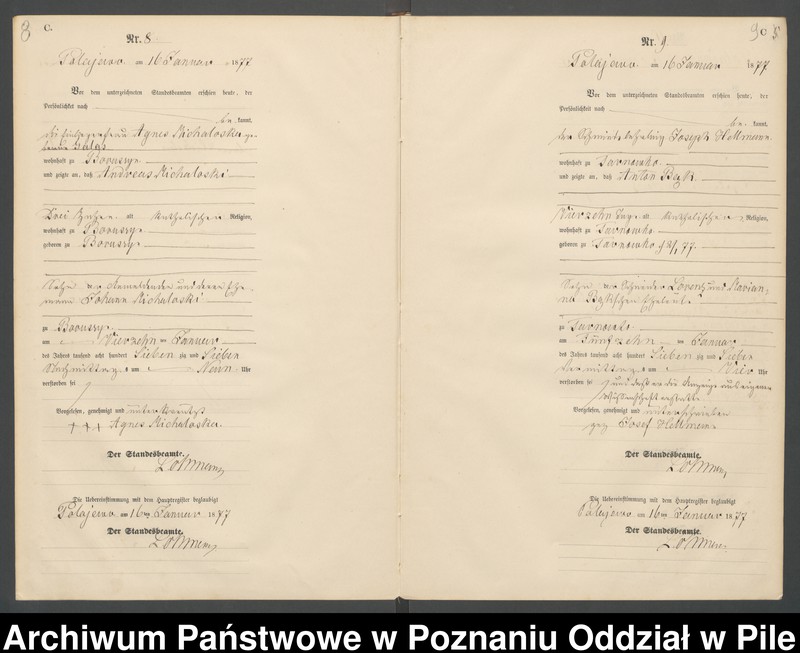 8
C.
Nr. 8
Polajewo am 16 Januar 1877
Vor dem unterzeichneten Standesbeamten erschien heute, der
Persönlichkeit nach
be kannt,
die Agnes Michaloska ge-
wohnhaft zu Boruszyn
und zeigte an, daß Andreas Michaloski
Drei alt katholischer Religion,
wohnhaft zu Boruszyn
geboren zu Boruszyn
Sohn der Anmeldenden und deren Ehe-
mann Johann Michaloski
zu Boruszyn
am Vierzehn ten Januar
des Jahres tausend acht hundert Sieben zig und Sieben
Nachmittags um Neun Uhr
verstorben sei
Vorgelesen, genehmigt und unterkreuzt
+++ Agnes Michaloska
Der Standesbeamte.
Die Uebereinstimmung mit dem Hauptregister beglaubigt
Polajewo am 16ten Januar 1877
Der Standesbeamte.
9
C
5
Nr. 9.
Polajewo am 16 Januar 1877
Vor dem unterzeichneten Standesbeamten erschien heute, der
Persönlichkeit nach
be kannt,
der Schmiedelehrling Joseph Hellmann
wohnhaft zu Tarnowko
und zeigte an, daß Anton
Vierzehn Tage alt katholischer Religion,
wohnhaft zu Tarnowko
geboren zu Tarnowko
Sohn der Schneider Lorenz und Marian-
na Eheleute
zu Tarnowko
am Fünfzehn ten Januar
des Jahres tausend acht hundert Sieben zig und Sieben
Vormittags um Vier Uhr
verstorben sei und daß er die Anzeige aus eigener
Wissenschaft erstatte
Vorgelesen, genehmigt und unterschrieben
gez Josef Hellmann
Der Standesbeamte.
Die Uebereinstimmung mit dem Hauptregister beglaubigt
Polajewo am 16ten Januar 1877
Der Standesbeamte.
Archiwum Państwowe w Poznaniu Oddział w Pile